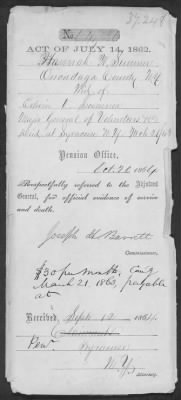 37,248
No.
ACT OF JULY 14, 1862.
Hannah W. Sumner
Onondaga County N.Y.
Wid. of
Edwin V. Sumner
Major General of Volunteers
died at Syracuse N.Y. Mch 21/63
Pension Office,
Oct. 20 1864
Respectfully referred to the Adjutant
General, for official evidence of service
and death.
Joseph H Barrett
Commissioner.
$30 per month, Com'g
March 21, 1863, payable
at
Received, Sept. 12 1864
Syracuse
N.Y.
Attorney.